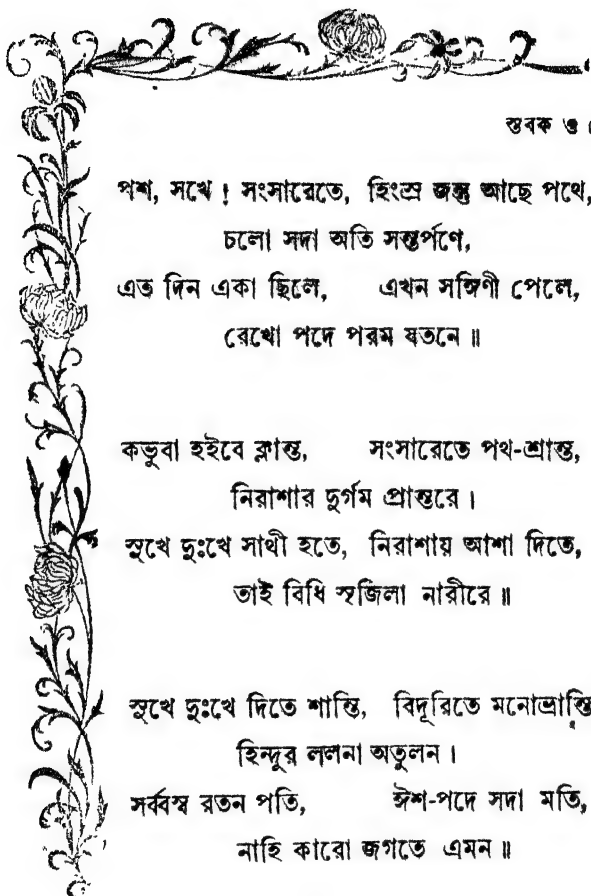 স্তবক ৩।
পশ, সখে! সংসারেতে, হিংস্র জন্তু আছে পথে,
চলো সদা অতি সন্তর্পণে,
এত দিন একা ছিলে, এখন সঙ্গিণী পেলে,
রেখো পদে পরম যতনে॥
কভুবা হইবে ক্লান্ত, সংসারেতে পথ-শ্রান্ত,
নিরাশার দুর্গম প্রান্তরে।
সুখে দুঃখে সাথী হতে, নিরাশায় আশা দিতে,
তাই বিধি সৃজিলা নারীরে॥
সুখে দুঃখে দিতে শান্তি, বিদূরিতে মনোভ্রান্তি
হিন্দুর ললনা অতুলন।
সর্ব্বস্ব রতন পতি, ঈশ-পদে সদা মতি,
নাহি কারো জগতে এমন॥